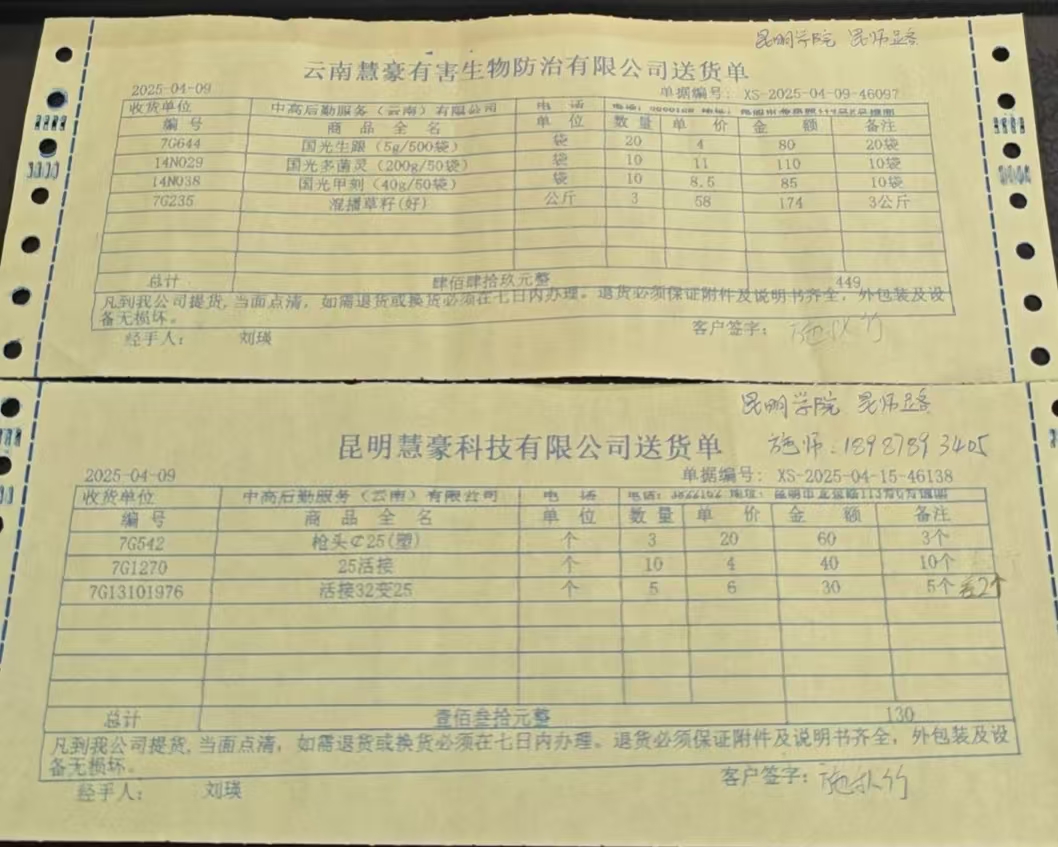 昆明学院 昆师路
云南慧豪有害生物防治有限公司送货单
2025-04-09 单据编号: XS-2025-04-09-46097
收货单位 中高后勤服务（云南）有限公司 电 话
编 号 商 品 全 名 单 位 数 量 单 价 金 额 备注
7G644 国光生跟（5g/500袋） 袋 20 4 80 20袋
14N029 国光多菌灵（200g/50袋） 袋 10 11 110 10袋
14N038 国光甲刻（40g/50袋） 袋 10 8.5 85 10袋
7G235 混播草籽(好) 公斤 3 58 174 3公斤
总计 肆佰肆拾玖元整 449
凡到我公司提货,当面点清，如需退货或换货必须在七日内办理。退货必须保证附件及说明书齐全，外包装及设
备无损坏。
经手人: 刘瑛 客户签字:
昆明学院 昆师路
昆明慧豪科技有限公司送货单
施师:
2025-04-09 单据编号: XS-2025-04-15-46138
收货单位 中高后勤服务（云南）有限公司 电 话
编 号 商 品 全 名 单 位 数 量 单 价 金 额 备注
7G542 枪头¢25(塑) 个 3 20 60 3个
7G1270 25活接 个 10 4 40 10个
7G13101976 活接32变25 个 5 6 30 5个
总计 壹佰叁拾元整 130
凡到我公司提货,当面点清，如需退货或换货必须在七日内办理。退货必须保证附件及说明书齐全，外包装及设
备无损坏。
经手人: 刘瑛 客户签字: